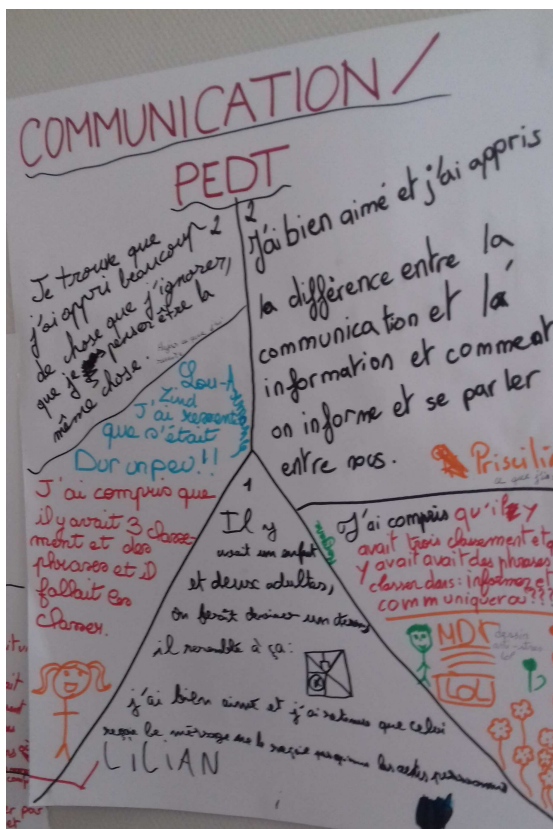 COMMUNICATION /
PEDT
2
Je trouve que
j'ai appri beaucoup
de chose que j'ignorer,
que je penser être la
même chose.
2
J'ai bien aimé et j'ai appris
la différence entre la
communication et la
information et comment
on informe et se parler
entre nous.
Lou-Anne
Zind
J'ai ressenti
que s'était
Dur un peu!!
J'ai compris que
il y avait 3 classe-
ment et des
phrases et il
fallait les
classer.
1
Il y
avait un enfant
et deux adultes,
on devait dessiner un dessin
il resemble à ça:
j'ai bien aimé et j'ai retenue que celui
reçoit le message
LILIAN
Priscilia
J'ai compris qu'il y
avait trois classement et
y avait avait des phrases
classer dans: informer et
communiquer ou???
MDR
LOL